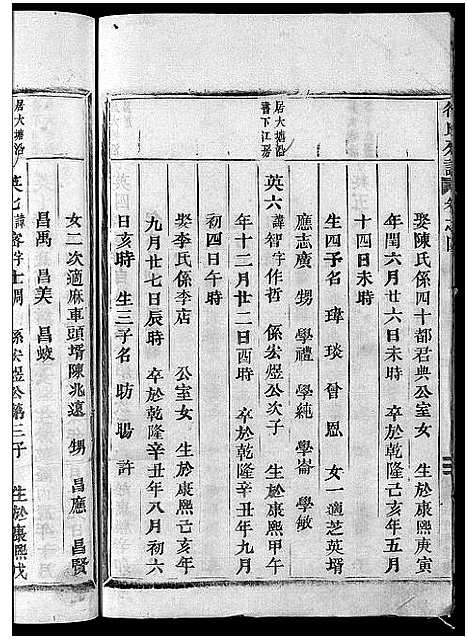 娶陳氏係四十都君典公室女　生於康熙庚寅
年閏六月廿六日未時　卒於乾隆己亥年五月
十四日未時
生四子名　瑋　琰　曾　恩　女一適芝英壻
應志廣　甥　學禮　學純　學崙　學敏
居大塘沿
下江房
英六　諱智　字作哲　係宏煜公次子　生於康熙甲午
年十二月廿二日酉時　卒於乾隆辛丑年九月
初四日午時
娶李氏係李店　公室女　生於康熙己亥年
九月廿七日辰時　卒於乾隆辛丑年八月初六
日亥時　生三子名　昉　暘　許
女二次適麻車頭壻陳兆遠　甥　昌應　昌賢
昌禹　昌美　昌蛟
居大塘沿
英七　諱睿　字士調　係宏煜公第三子　生於康熙戊